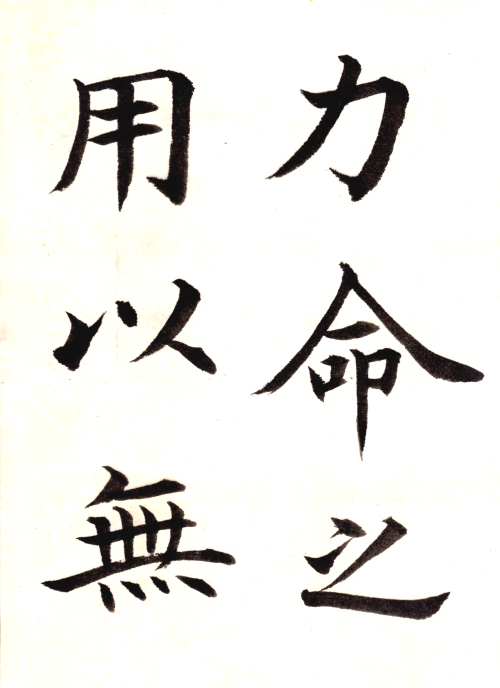 力命之
用以無